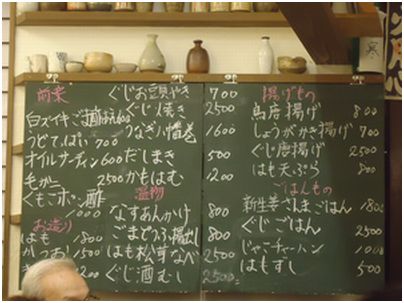 前菜
白ズイキごま酢 600
うどてっぱい 700
オイルサーディン 600
毛がに 2500
くもこポン酢
1000
お造り
はも 1800
かつお 1500
ぐじお頭やき 700
ぐじ焼き 2500
うなぎ八幡巻 1600
だしまき 500
かもはむ 1200
温物
なすあんかけ 800
ごまどうふ揚出し 800
はも松茸なべ
ぐじ酒むし 2500
揚げもの
鳥唐揚げ 800
しょうがかき揚げ 700
ぐじ唐揚げ 2500
はも天ぷら 800
ごはんもの
新生姜さんまごはん 1800
ぐじごはん 2500
じゃこチャーハン 1000
はもずし 500